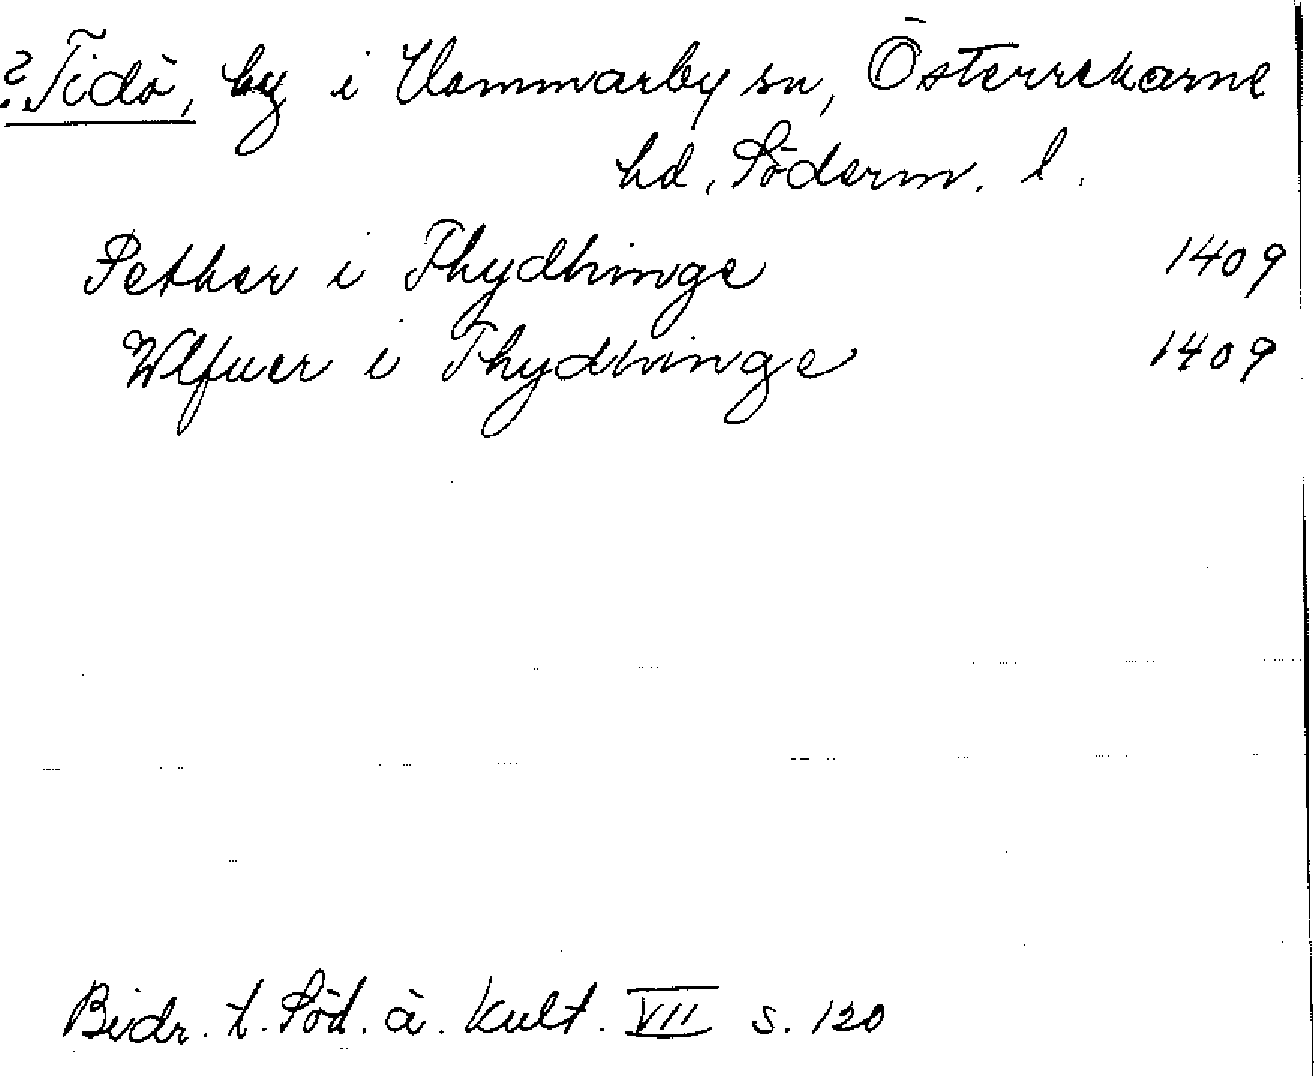 ? Tidö, by i Hammarby sn, Österrekarne
hd, Söderm. l.
Pether i Thydhinge 1409
Wlfuer i Thydhinge 1409
Bidr. t. Söd. ä. kult. VII s. 120